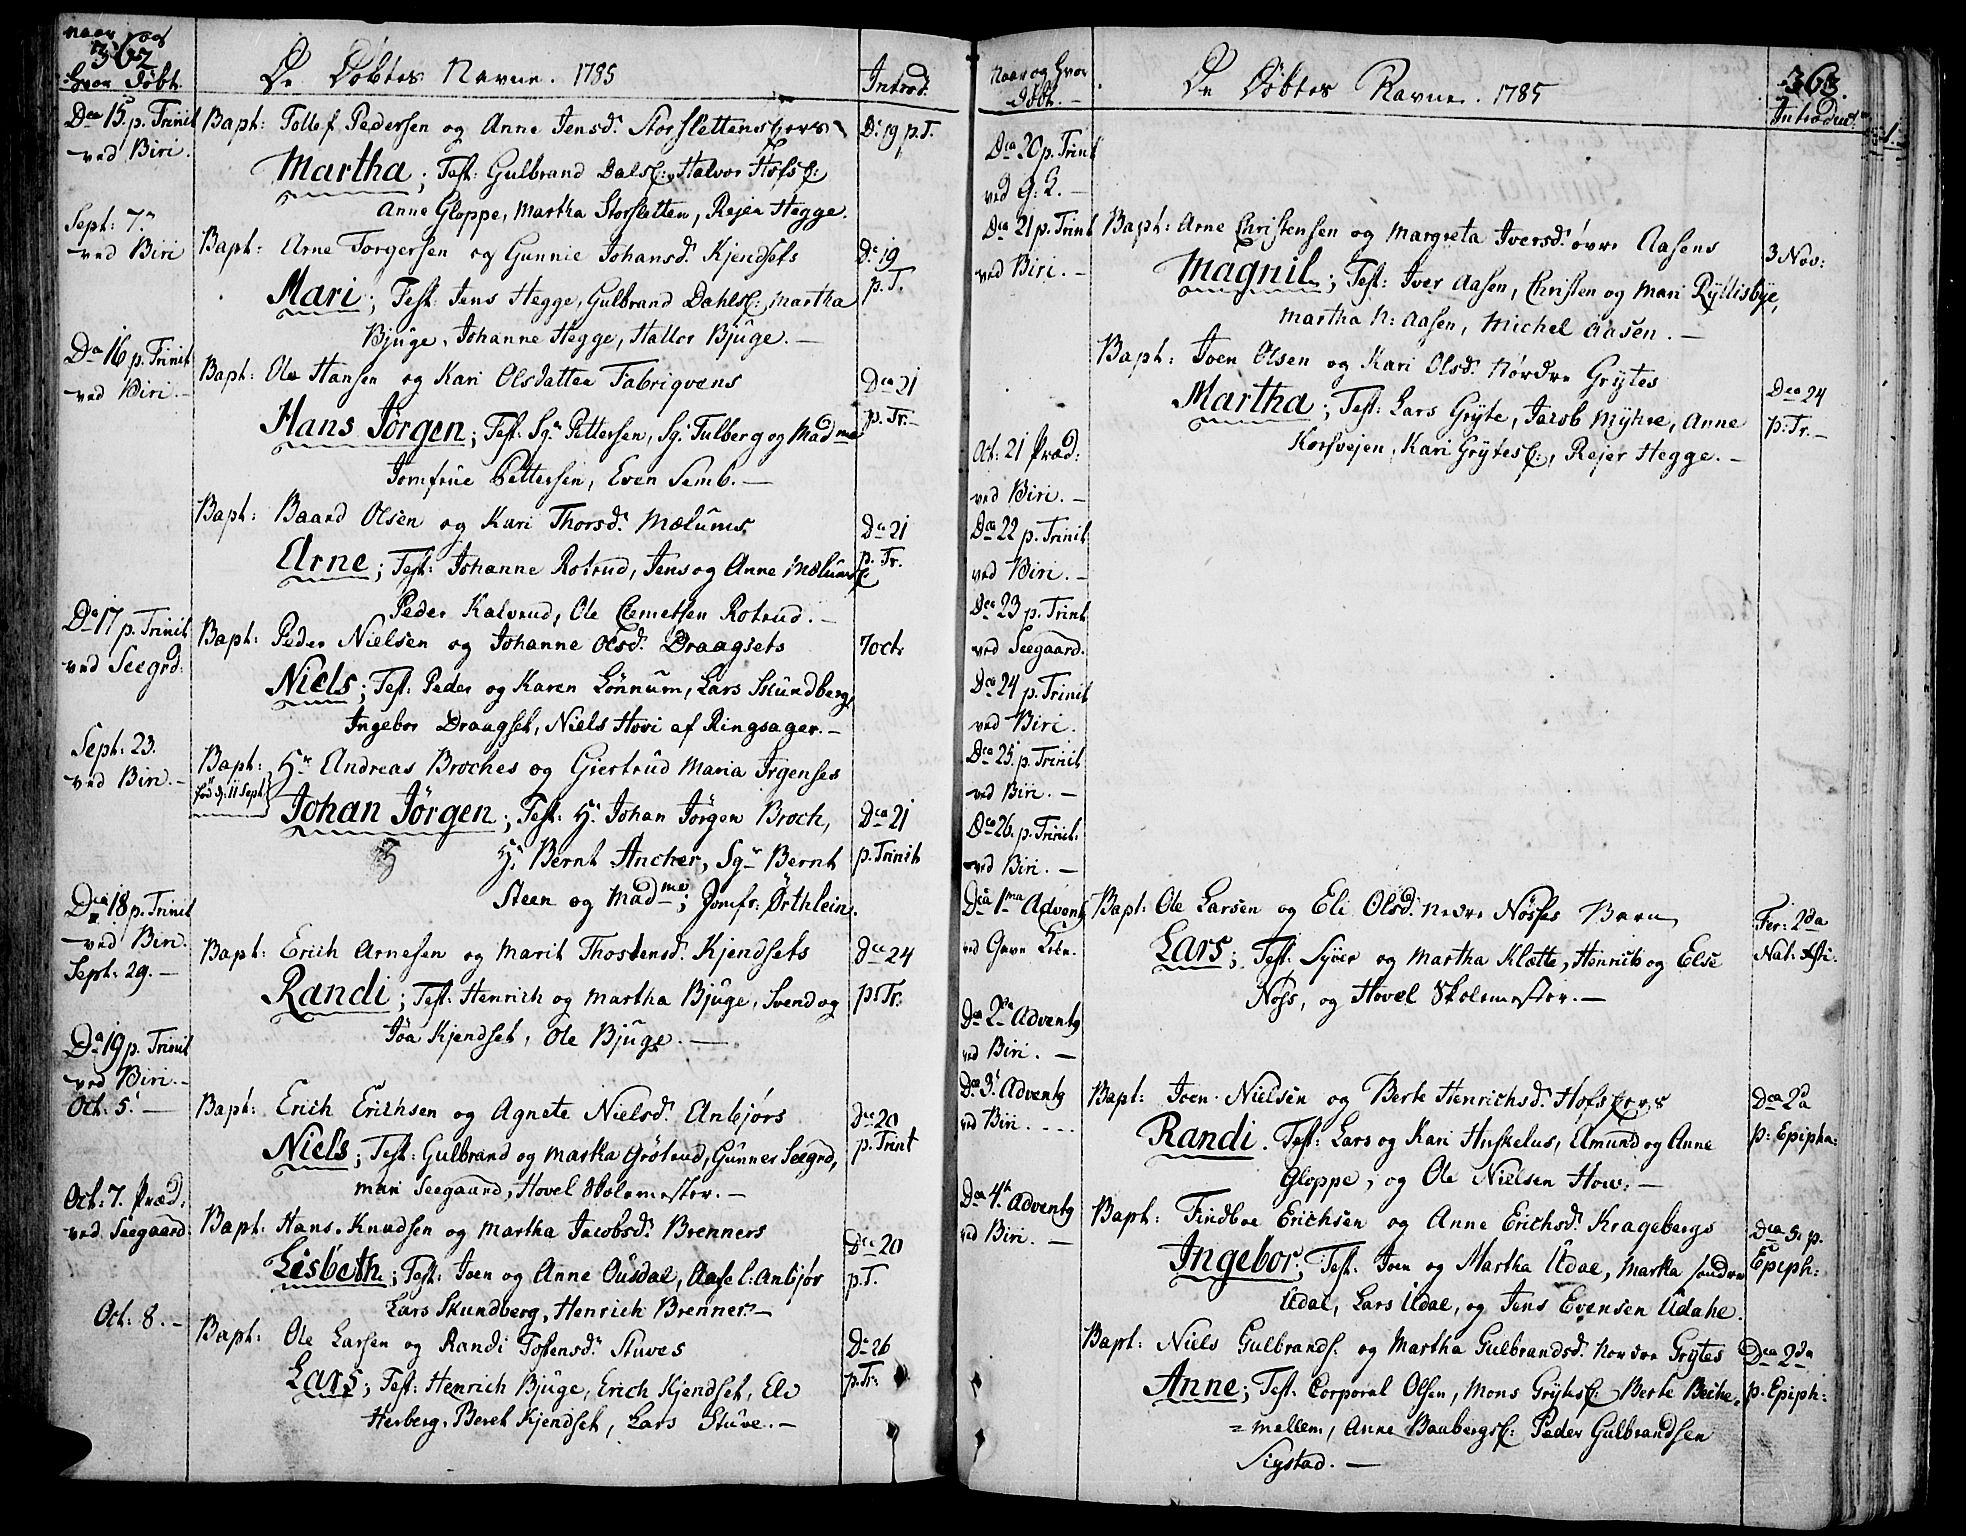 Naar og
362
hvor Døbt.
De Døbtes Navne. 1785
Introd.
Dca 15. p. Trinit
ved Biri.
Bapt: Tollef Pedersen og Anne Jensd. Storslettensejers
D: 19 p. T.
Martha; Test: Gulbrand Dalsej: Halvor Hofsej:
Anne Gloppe, Martha Storsletten, Rejer Hegge.
Sept: 7.
ved Biri
Bapt: Arne Torgersen og Gunnie Johansd. Kjendsets
D: 19
p. T.
Mari; Test: Jens Hegge, Gulbrand Dahlsej: Martha
Bjuge, Johanne Hegge, Hallor Bjuge. —
Dca 16 p. Trinit
ved Biri. —
Bapt: Ole Hansen og Kari Olsdatter Fabriqvens
Dca 21
p. Tr. —
Hans Jørgen; Test: Sgr Pettersen, Sg: Fulberg og Madme
Jomfrue Pettersen, Even Semb. —
Bapt: Baard Olsen og Kari Thorsd. Mælums
Dca 21
p. Tr.
Arne; Test: Johanne Rotrud, Jens og Anne Mælumsej
Peder Kalvrud, Ole Clemetsen Rotrud. —
Dca 17 p. Trinit
ved Seegrd:
Bapt: Peder Nielsen og Johanne Olsd. Draagsets
7 octr
Niels; Test: Peder og Karen Lønnum, Lars Skundberg,
Ingebor Draagset, Niels Hovi af Ringsager. —
Sept: 23.
ved Biri. —
Bapt: Hr Andreas Broches og Giertrud Maria Irgenses
fød d: 11 Sept
Johan Jørgen; Test: H: Johan Jørgen Broch,
Dca 21
p. Trinit
H: Bernt Ancher, Sgr Bernt
Steen og Madme; Jomfr: Ørthlein.
Dca 18 p. Trinit
ved Biri.
Sept: 29. —
Bapt: Erich Arnesen og Marit Thostensd. Kjendsets
Dca 24
p: Tr:
Randi; Test: Henrich og Martha Bjuge, Svend og
Jøa Kjendset, Ole Bjuge. —
Dca 19 p. Trinit
ved Biri. —
Oct: 5. —
Bapt: Erich Erichsen og Agnete Nielsd. Anbjørs
Dca 20
p. Trinit
Niels; Test: Gulbrand og Martha Grøtrud, Gunner Seegrd,
Mari Seegaard, Hovel Skolemester. —
Oct: 7. Præd:
ved Seegaard
Bapt: Hans Knudsen og Martha Jacobsd. Brenners
Dca 20
p. T.
Lisbeth; Test: Joen og Anne Ousdal, Aase l: Anbjør
Lars Skundberg, Henrich Brenner. —
Oct: 8. —
Bapt: Ole Larsen og Randi Tostensd. Stuves
D: 26
p. Tr.
Lars; Test: Henrich Bjuge, Erich Kjendset, Ele
Herberg, Beret Kjendset, Lars Stuve. —
Naar og hvor
Døbt. —
De Døbtes Navne. 1785
363.
Introduct:
Dca 20 p. Trinit
ved G: L. —
Dca 21 p. Trinit
ved Biri. —
Bapt: Arne Christensen og Margreta Iversd. øvre Aasens
3 Nov:
Magnil; Test: Iver Aasen, Christen og Mari Ryllisbye,
Martha N: Aasen, Michel Aasen. —
Bapt: Joen Olsen og Kari Olsd. Nørdre Grytes
Dca 24
p. Tr. —
Martha; Test: Lars Gryte, Jacob Myhre, Anne
Korsvejen, Kari Grytesej:, Rejer Hegge. —
Oct: 21 Præd:
ved Biri. —
Dca 22 p. Trinit
ved Biri. —
Dca 23 p. Trinit
ved Seegaard.
Dca 24 p. Trinit
ved Biri.
Dca 25. p. Trinit
ved Biri. —
Dca 26. p. Trinit:
ved Biri. —
Dca 1ma Advent
Bapt: Ole Larsen og Eli Olsd. nedre Nøsses Barn
Fer: 2da
Nat: Xsti.
Lars; Test: Syver og Martha Klætte, Henrich og Else
Nøss, og Hovel Skolemester. —
Dca 2da Advent
ved Biri. —
Dca 3. Advent
ved Biri. . . .
Bapt: Joen Nielsen og Berte Henrichsd. Hofsejers
Dca 2da
p: Epipha:
Randi. Test: Lars og Kari Huskelus, Amund og Anne
Gloppe, og Ole Nielsen How: —
Dca 4. Advent
ved Biri. —
Bapt: Findboe Erichsen og Anne Erichsd. Kragebergs
Dca 5. p.
Epiph:
Ingebor; Test: Joen og Martha Udal, Martha søndre
Udal, Lars Udal, og Jens Evensen Udahl.
Bapt: Niels Gulbrands. og Martha Gulbrandsd. Nordre Grytes
Dca 2da
p. Epiph:
Anne; Test: Corporal Olsen, Mons Grytesej: Berte Beche-
=mellem, Anne Baabergsej: Peder Gulbrandsen
Sigstad. —